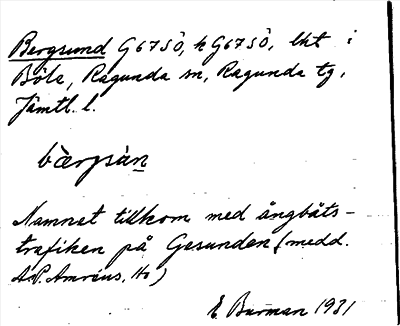 Bergsund G67SÖ, k G67SÖ, lkt i
Böle, Ragunda sn, Ragunda tg,
Jämtl. l.
bærgsàn
Namnet tillkom med ångbåts-
trafiken på Gesunden (medd.
E. Burman 1931